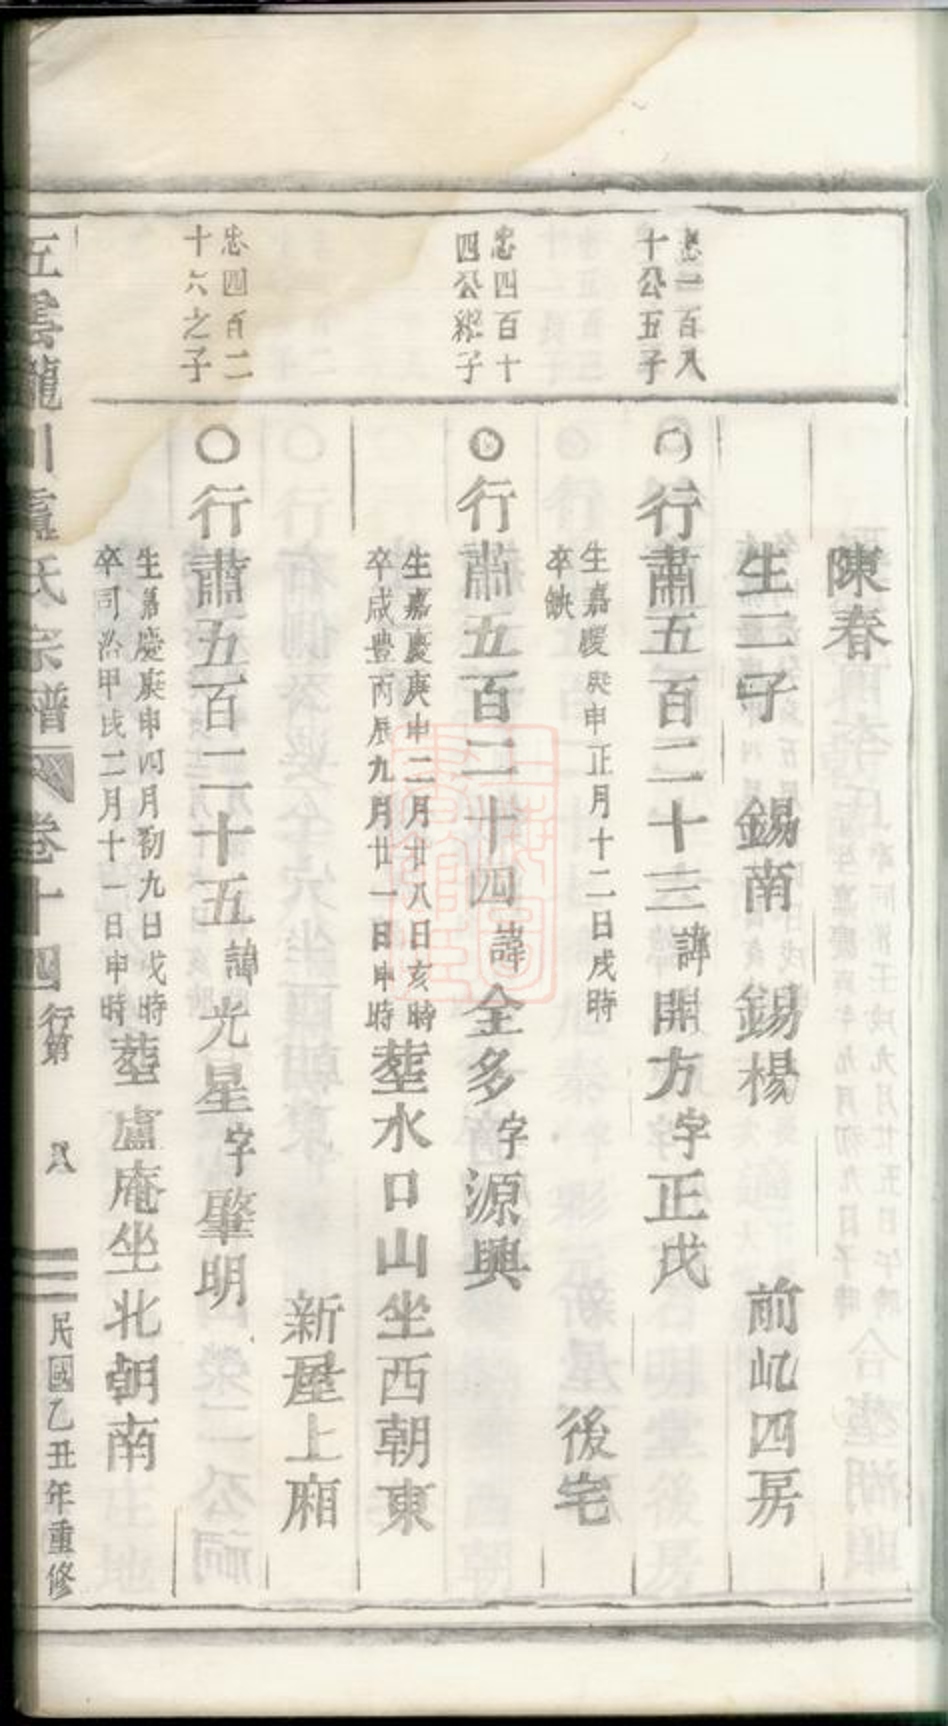 陳春
生二子 錫南 錫楊 前屺四房
忠一百八
十公五子
○行肅五百二十三諱開方字正茂
生嘉慶 申正月十二日戌時
卒缺
後宅
忠四百十
四公繼子
○行肅五百二十四諱全多字源興
生嘉慶庚申二月廿八日亥時
卒咸豐丙辰九月廿一日申時
塟水口山坐西朝東
新屋上廂
忠四百二
十六之子
○行肅五百二十五諱光星字肇明
生嘉慶庚申四月初九日戌時
卒同治甲戌二月十一日申時
塟盧庵坐北朝南
五雲龍川盧氏宗譜 卷十四 行第 八 民國乙丑年重修